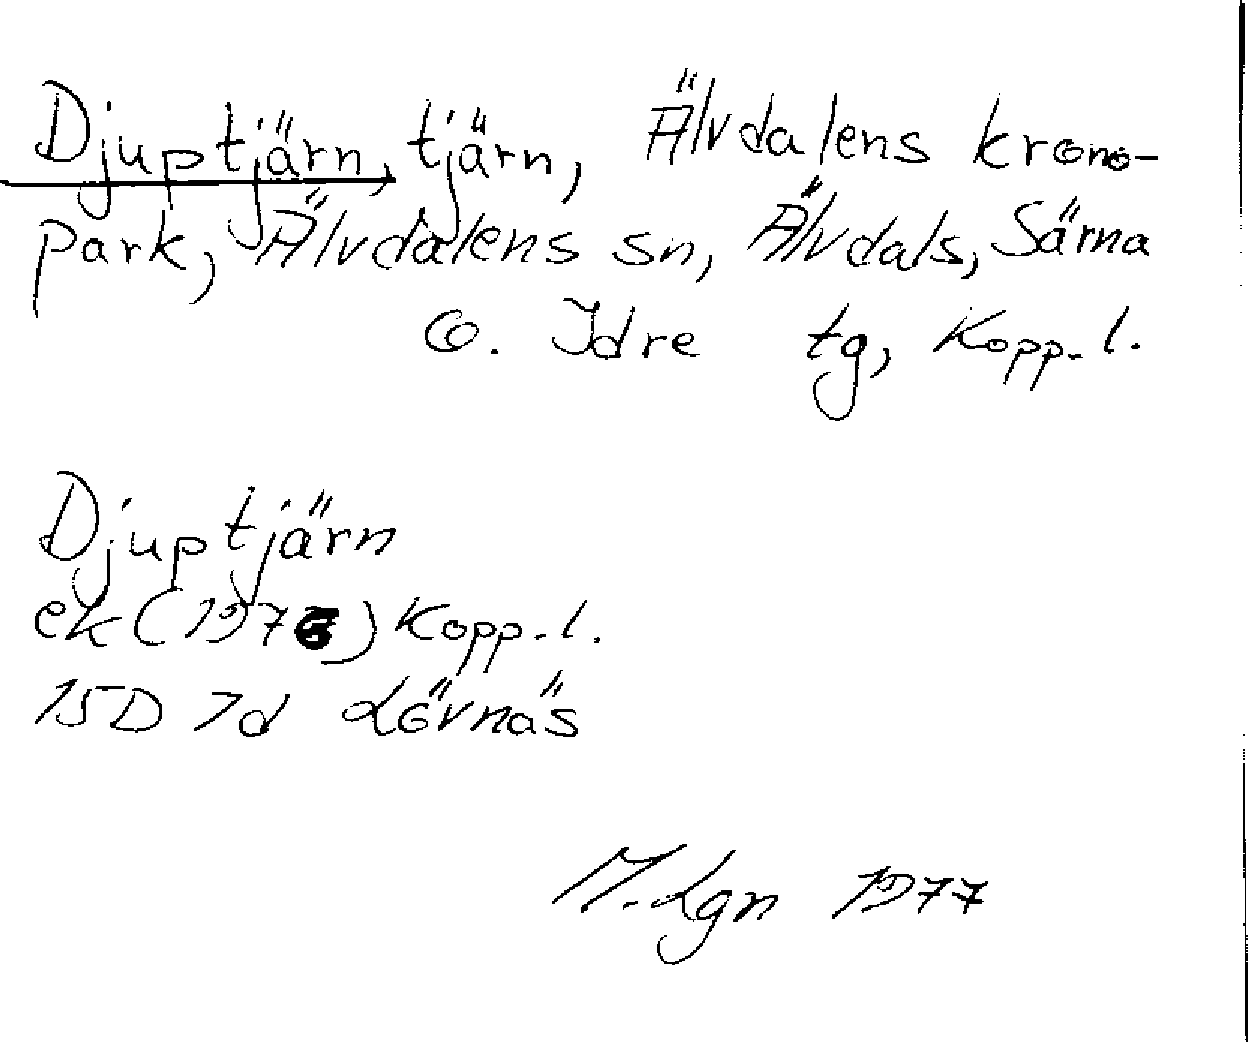 Djuptjärn, tjärn, Älvdalens krono-
park, Älvdalens sn, Älvdals, Särna
o. Idre tg, Kopp.l.
Djuptjärn
ek (1976) Kopp.l.
15D 7d Lövnäs
M.Lgn 1977